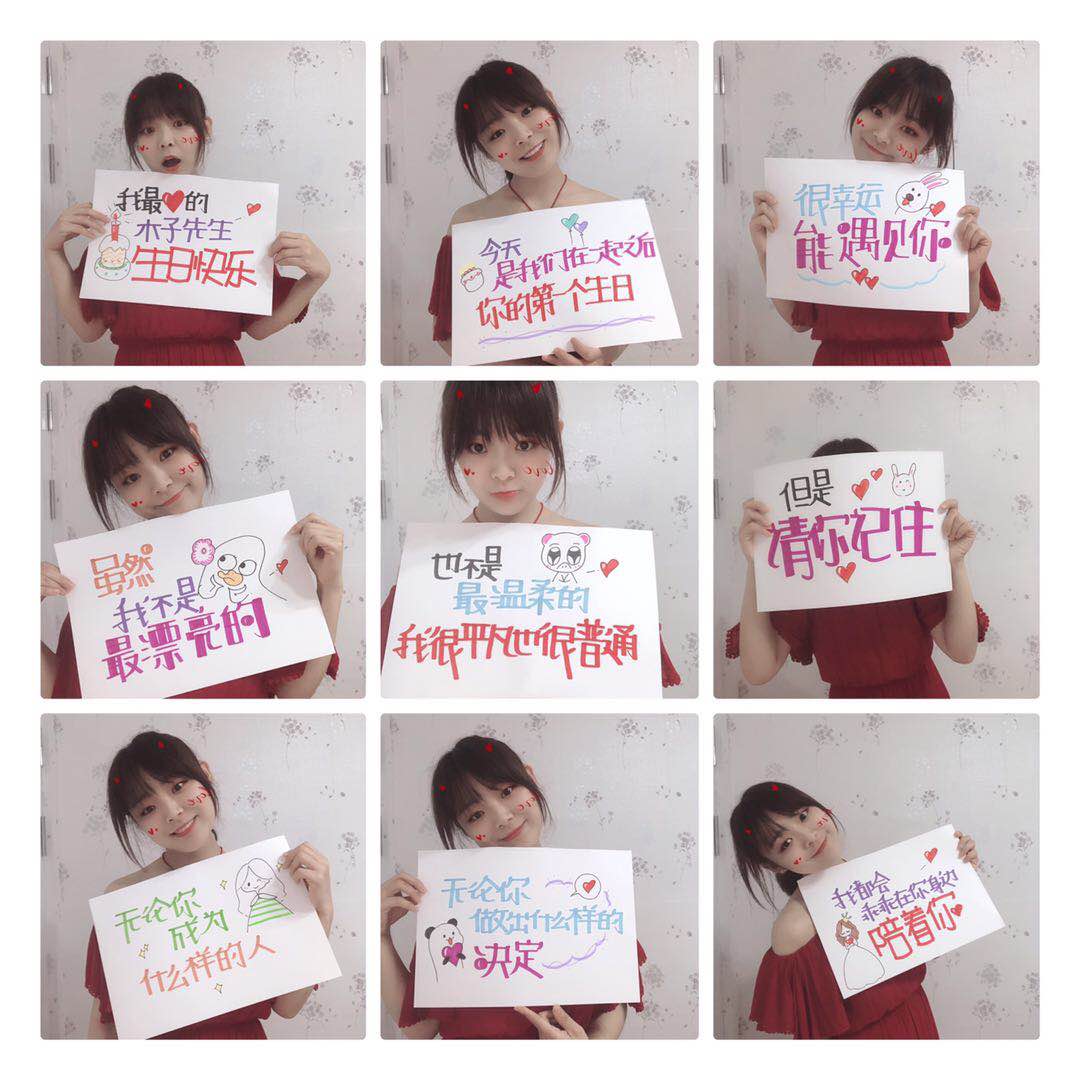 我最❤的
木子先生
生日快乐
今天
是我们在一起之后
你的第一个生日
很幸运
能遇见你
虽然
我不是
最漂亮的
也不是
最温柔的
我很平凡也很普通
但是
请你记住
无论你
成为
什么样的人
无论你
做出什么样的
决定
我都会
乖乖在你身边
陪着你